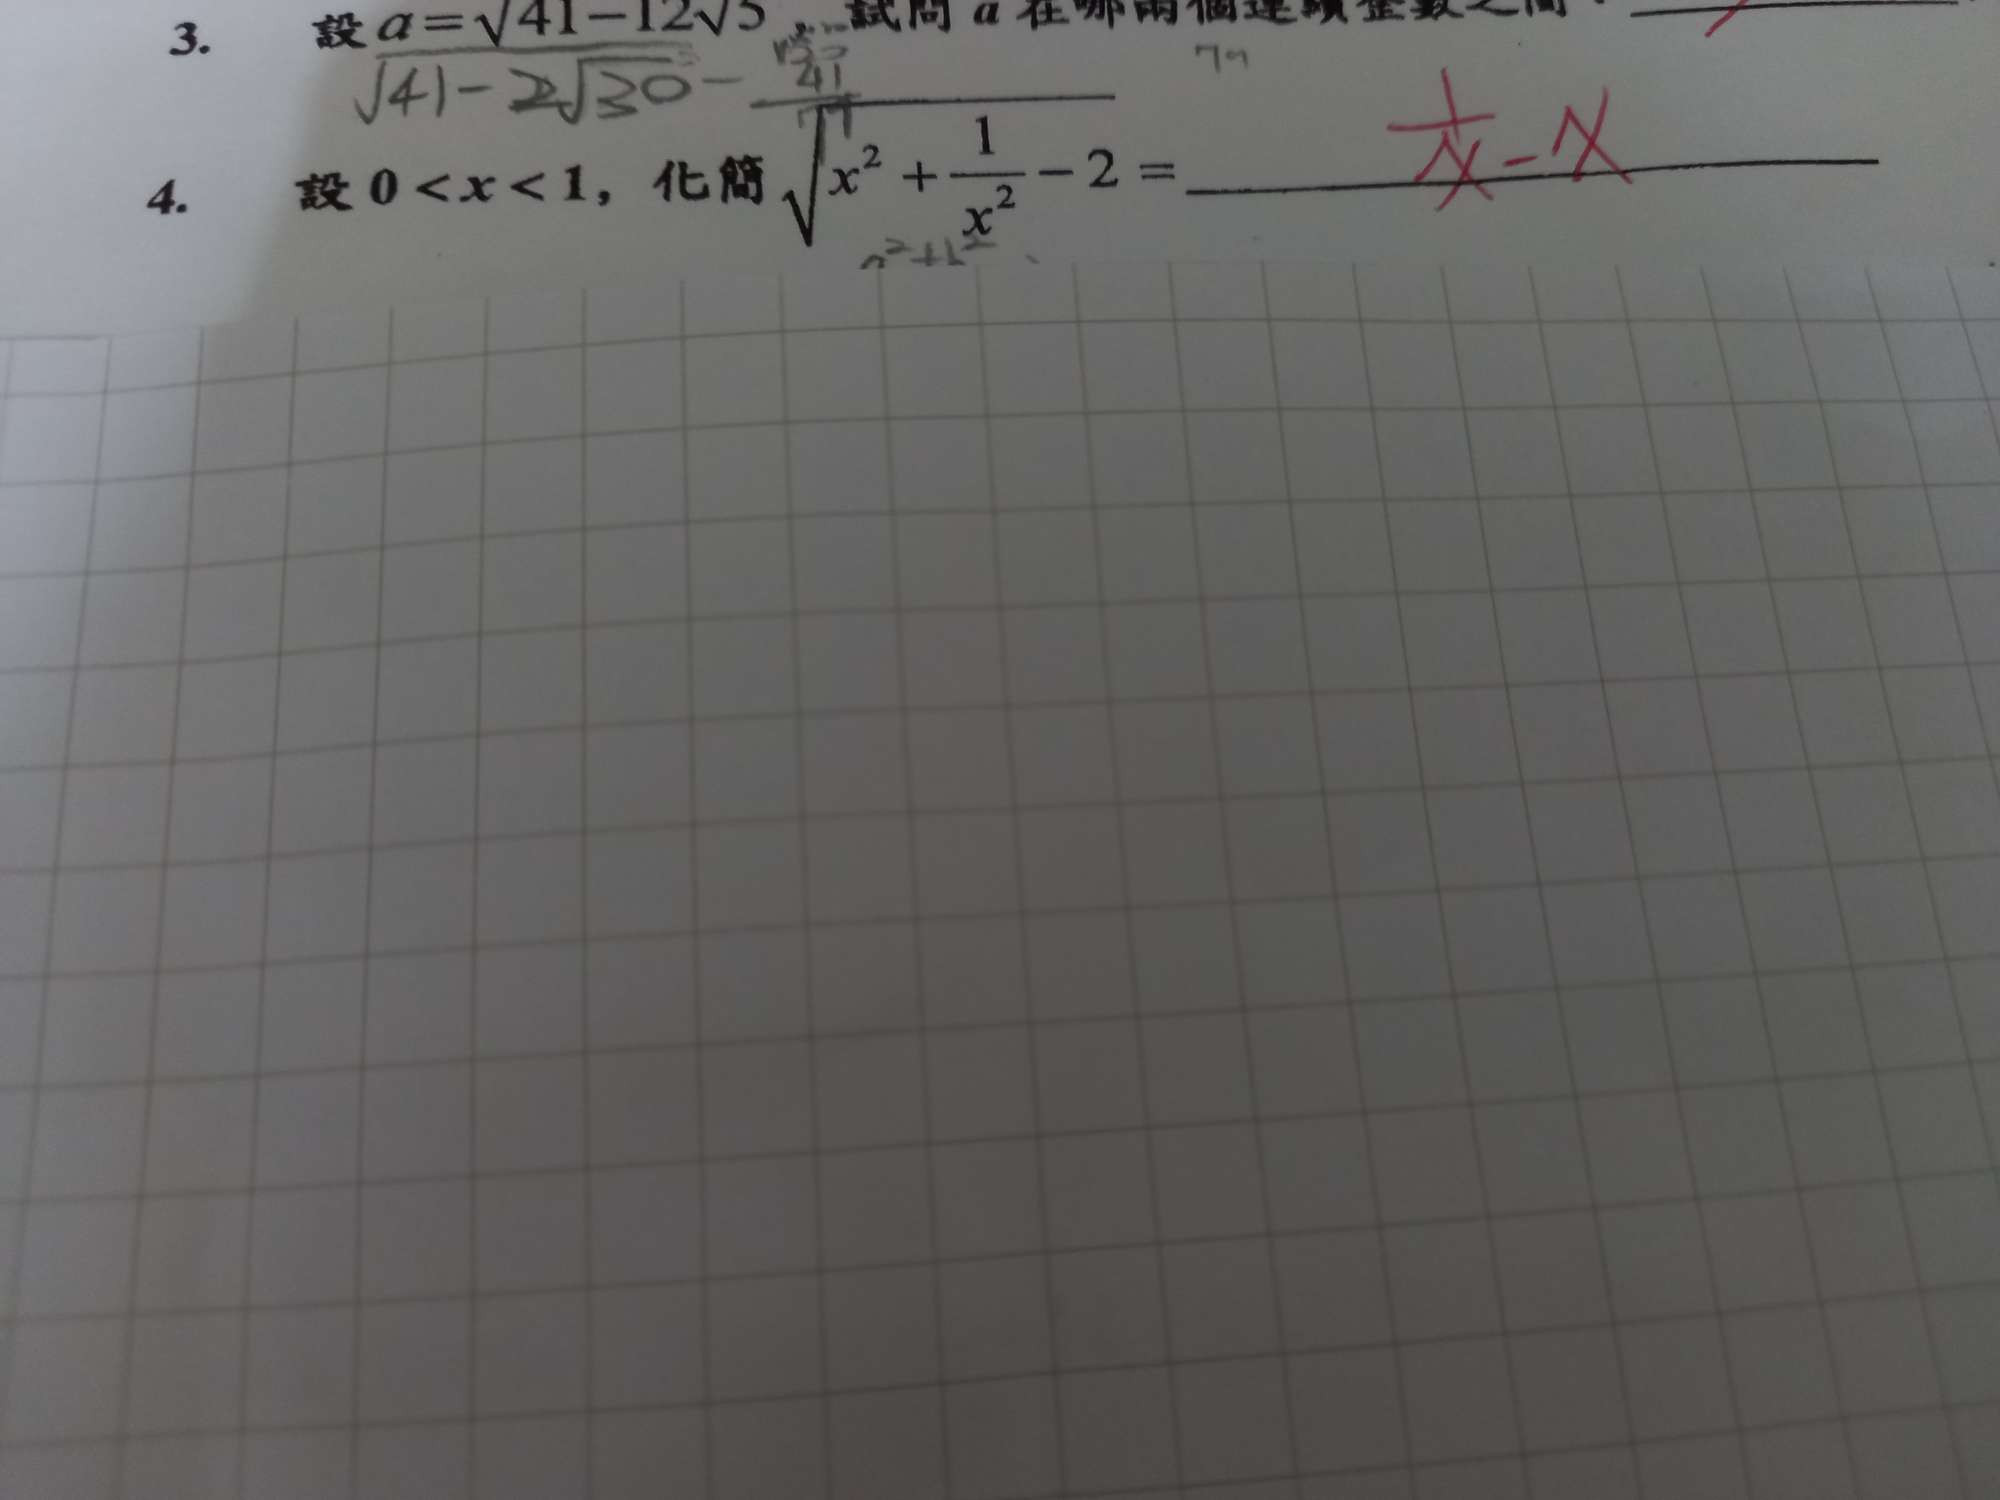 3. 設 a=√41−12√5，試問 a 在哪兩個連續整數之間？
√41−2√30 −
41
77
4. 設 0<x<1，化簡 √x²+1/x²−2 = 1/x−x
a²+b²